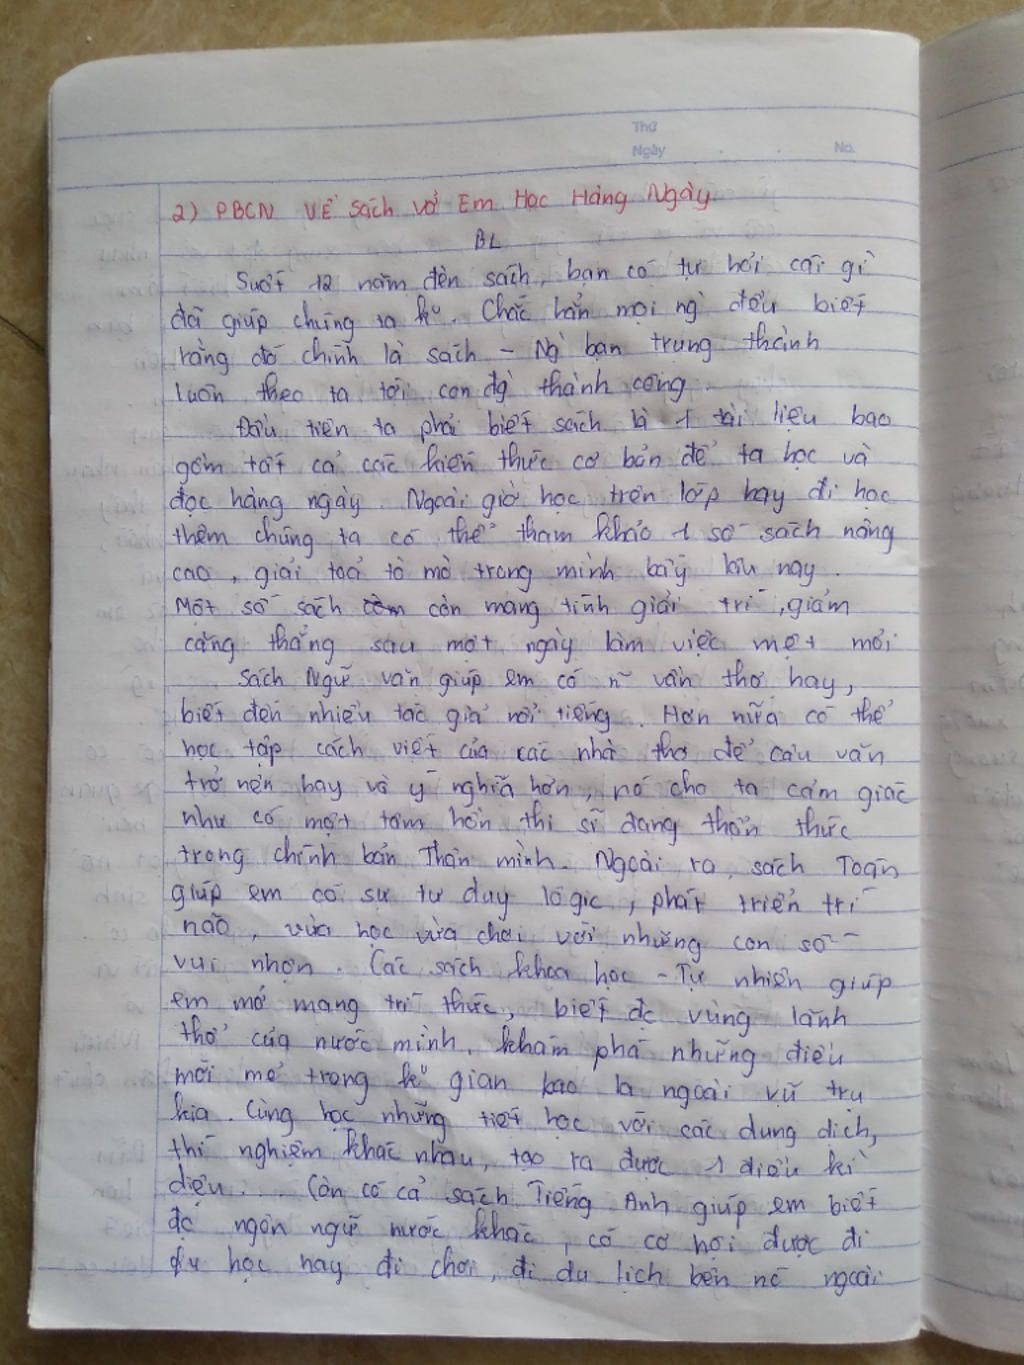 Thứ
Ngày . . No.
2) PBCN VỀ Sách vở Em Học Hàng Ngày
BL
Suốt 12 năm đèn sách, bạn có tự hỏi cái gì
đã giúp chúng ta k°. Chắc hẳn mọi ng` đều biết
rằng đó chính là sách - Ng` bạn trung thành
luôn theo ta tới con đg` thành công.
Đầu tiên ta phải biết sách là 1 tài liệu bao
gồm tất cả các kiến thức cơ bản để ta học và
đọc hàng ngày. Ngoài giờ học trên lớp hay đi học
thêm chúng ta có thể tham khảo 1 số sách nâng
cao, giải toả tò mò trong mình bấy lâu nay.
Một số sách còn mang tính giải trí, giảm
căng thẳng sau một ngày làm việc mệt mỏi
Sách Ngữ văn giúp em có n~ vần thơ hay,
biết đến nhiều tác giả nổi tiếng. Hơn nữa có thể
học tập cách viết của các nhà thơ để câu văn
trở nên hay và ý nghĩa hơn, nó cho ta cảm giác
như có một tâm hồn thi sĩ đang thổn thức
trong chính bản Thân mình. Ngoài ra, sách Toán
giúp em có sự tư duy lôgic, phát triển trí
não, vừa học vừa chơi với những con số
vui nhộn. Các sách khoa học - Tự nhiên giúp
em mở mang trí thức, biết đc vùng lãnh
thổ của nước mình, khám phá những điều
mới mẻ trong k° gian bao la ngoài vũ trụ
kia. Cùng học những tiết học với các dung dịch,
thí nghiệm khác nhau, tạo ra được 1 điều kì
diệu... Còn có cả sách Tiếng Anh giúp em biết
đc ngôn ngữ nước khác, có cơ hội được đi
du học hay đi chơi, đi du lịch bên nc ngoài